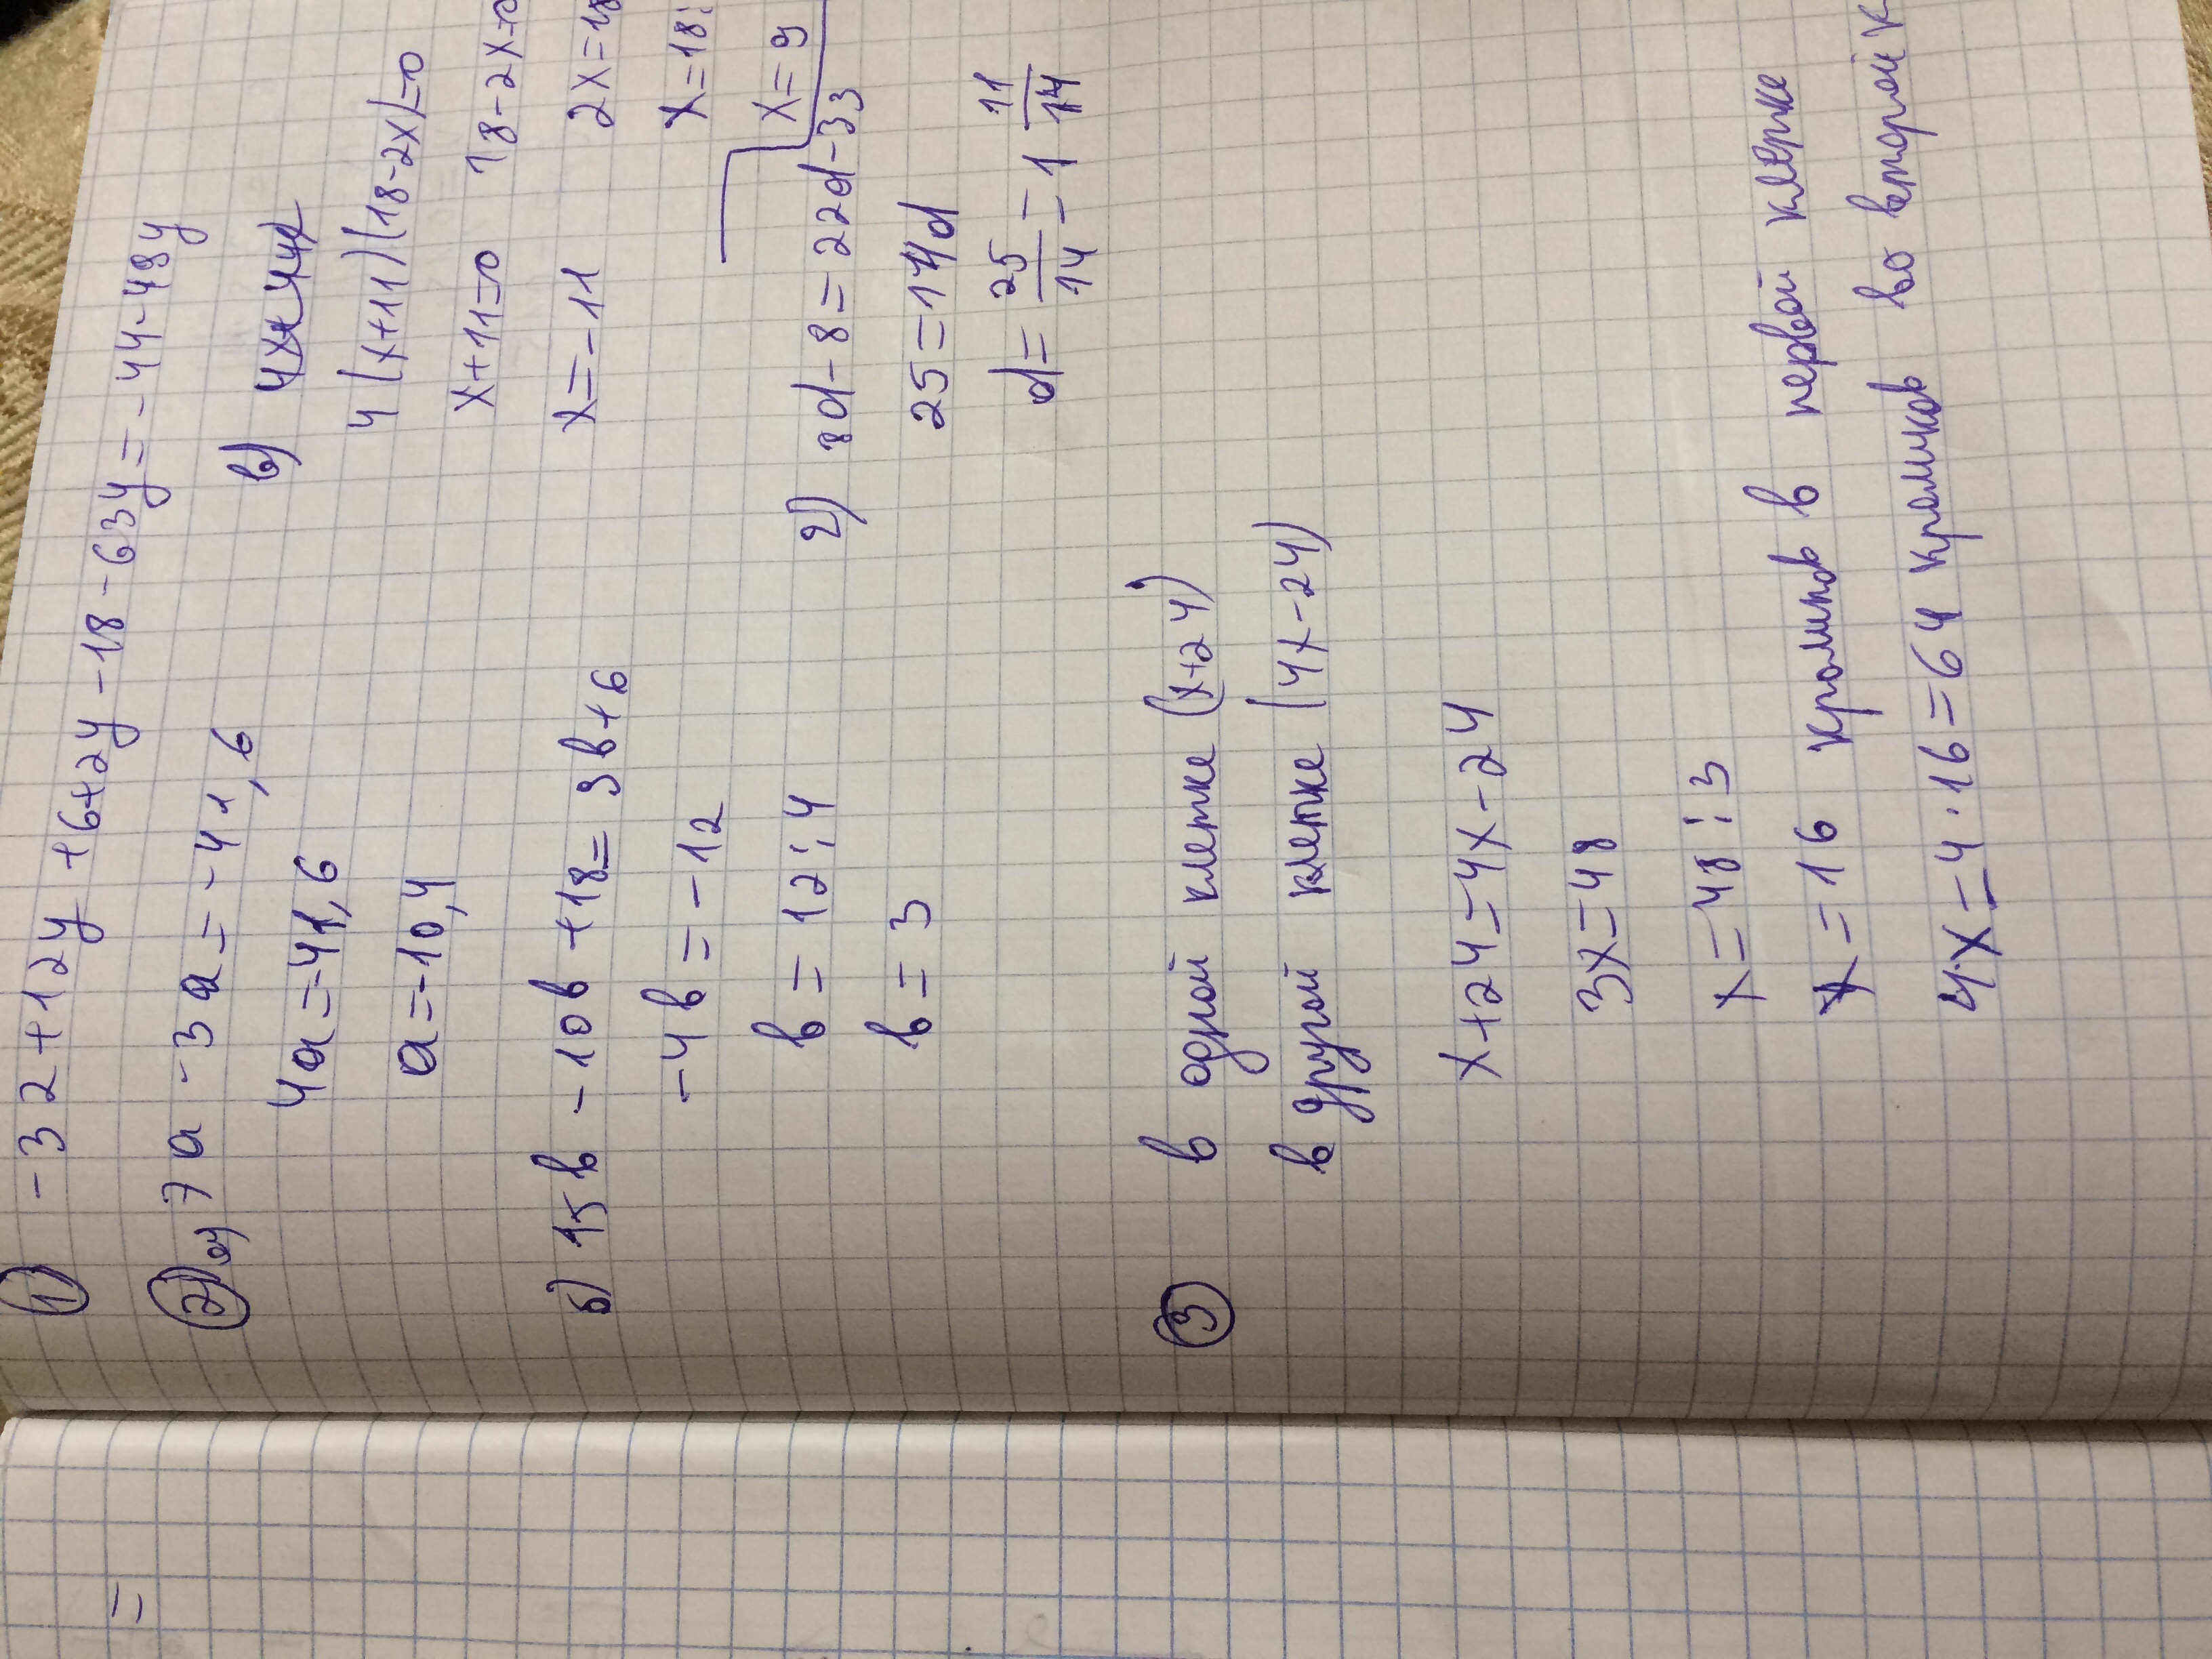 ① -32+12y+6+2y-18-63y=-44-48y
② а) 7a-3a=-41,6
4a=-41,6
a=-10,4
б) 15b-10b+18=9b+6
-4b=-12
b=12:4
b=3
в)
4(x+11)(18-2x)=0
x+11=0 18-2x=0
x=-11 2x=18
x=18:
x=9
г) 8d-8=22d-33
25=14d
d=25/14=1 11/14
③ в одной клетке (x+24)
в другой клетке (4x-24)
x+24=4x-24
3x=48
x=48:3
x=16 кроликов в первой клетке
4x=4·16=64 кроликов во второй к
=